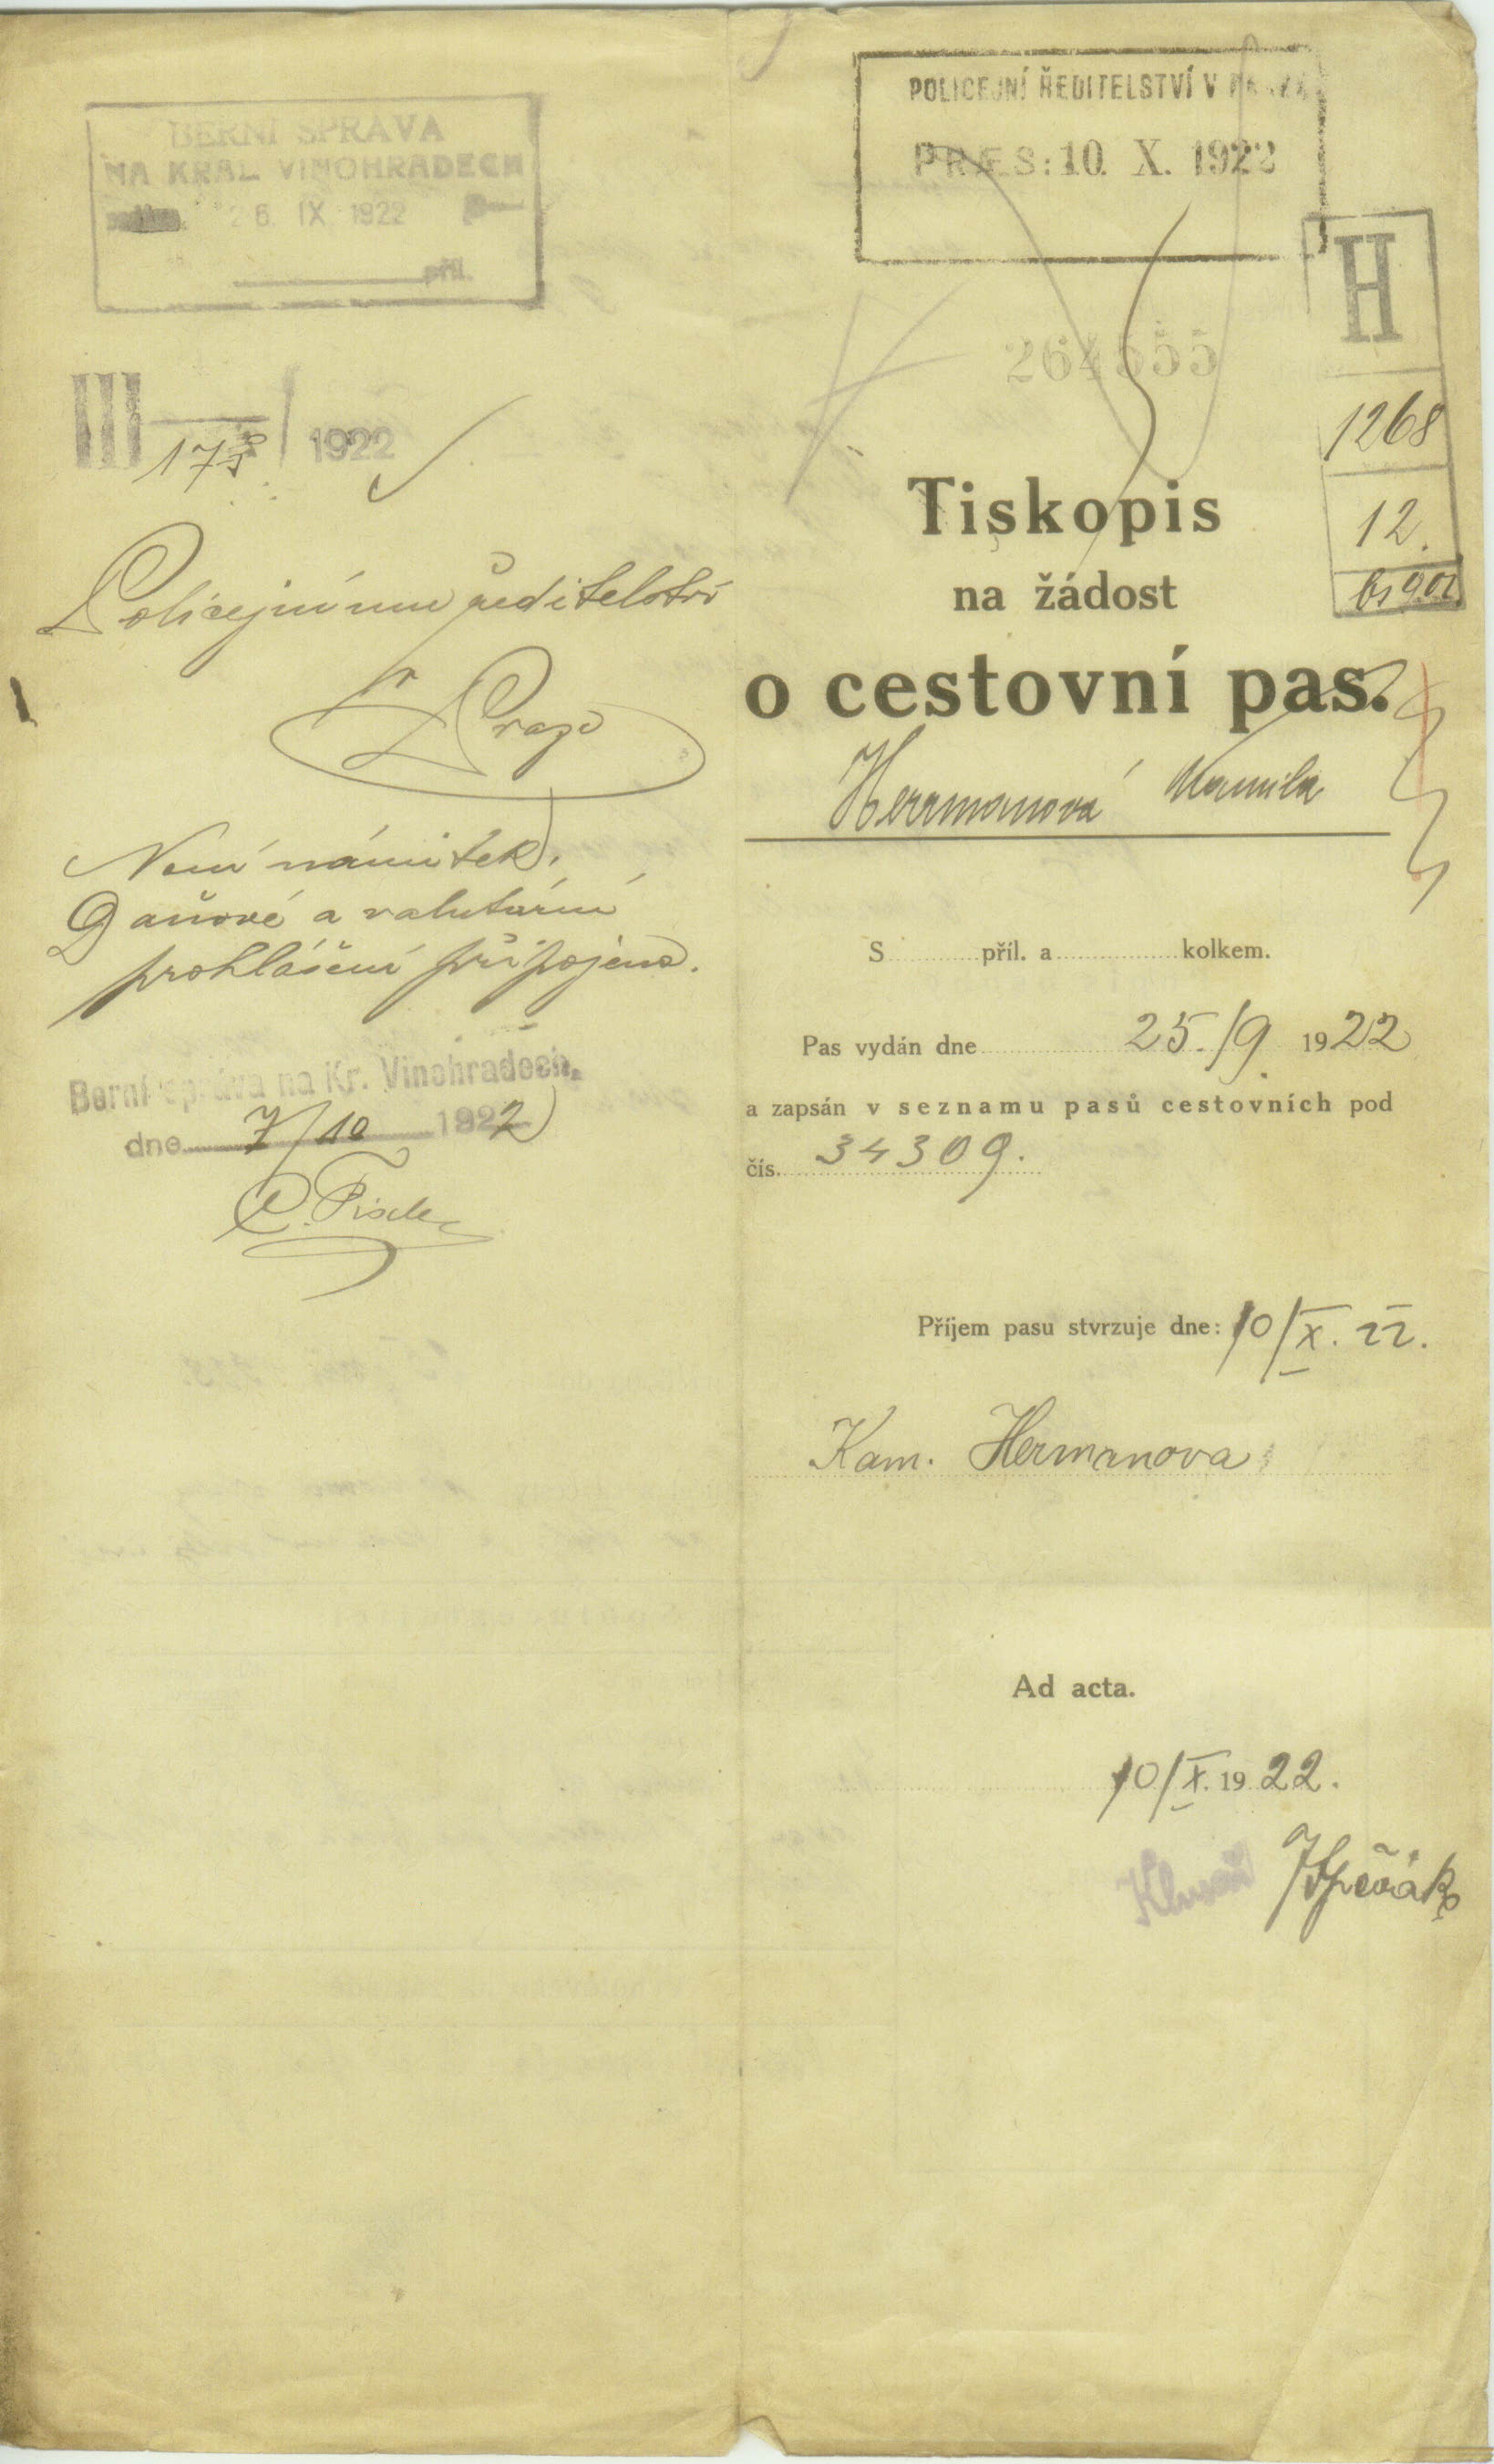 BERNÍ SPRÁVA
NA KRÁL. VINOHRADECH
26. IX. 1922
příl.
III 175 / 1922
Policejnímu ředitelství
v Praze
Není námitek.
Daňové a valutární
prohlášení připojeno.
Berní správa na Kr. Vinohradech,
dne 7/10 1922
POLICEJNÍ ŘEDITELSTVÍ V PRAZE
PRÆS: 10. X. 1922
H
264555
1268
12.
Tiskopis
na žádost
o cestovní pas.
Herrmanová Kamila
S příl. a kolkem.
Pas vydán dne 25./9. 1922
a zapsán v seznamu pasů cestovních pod
čís. 34309.
Příjem pasu stvrzuje dne: 10/X. 22.
Kam. Hermanova
Ad acta.
10/X. 1922.